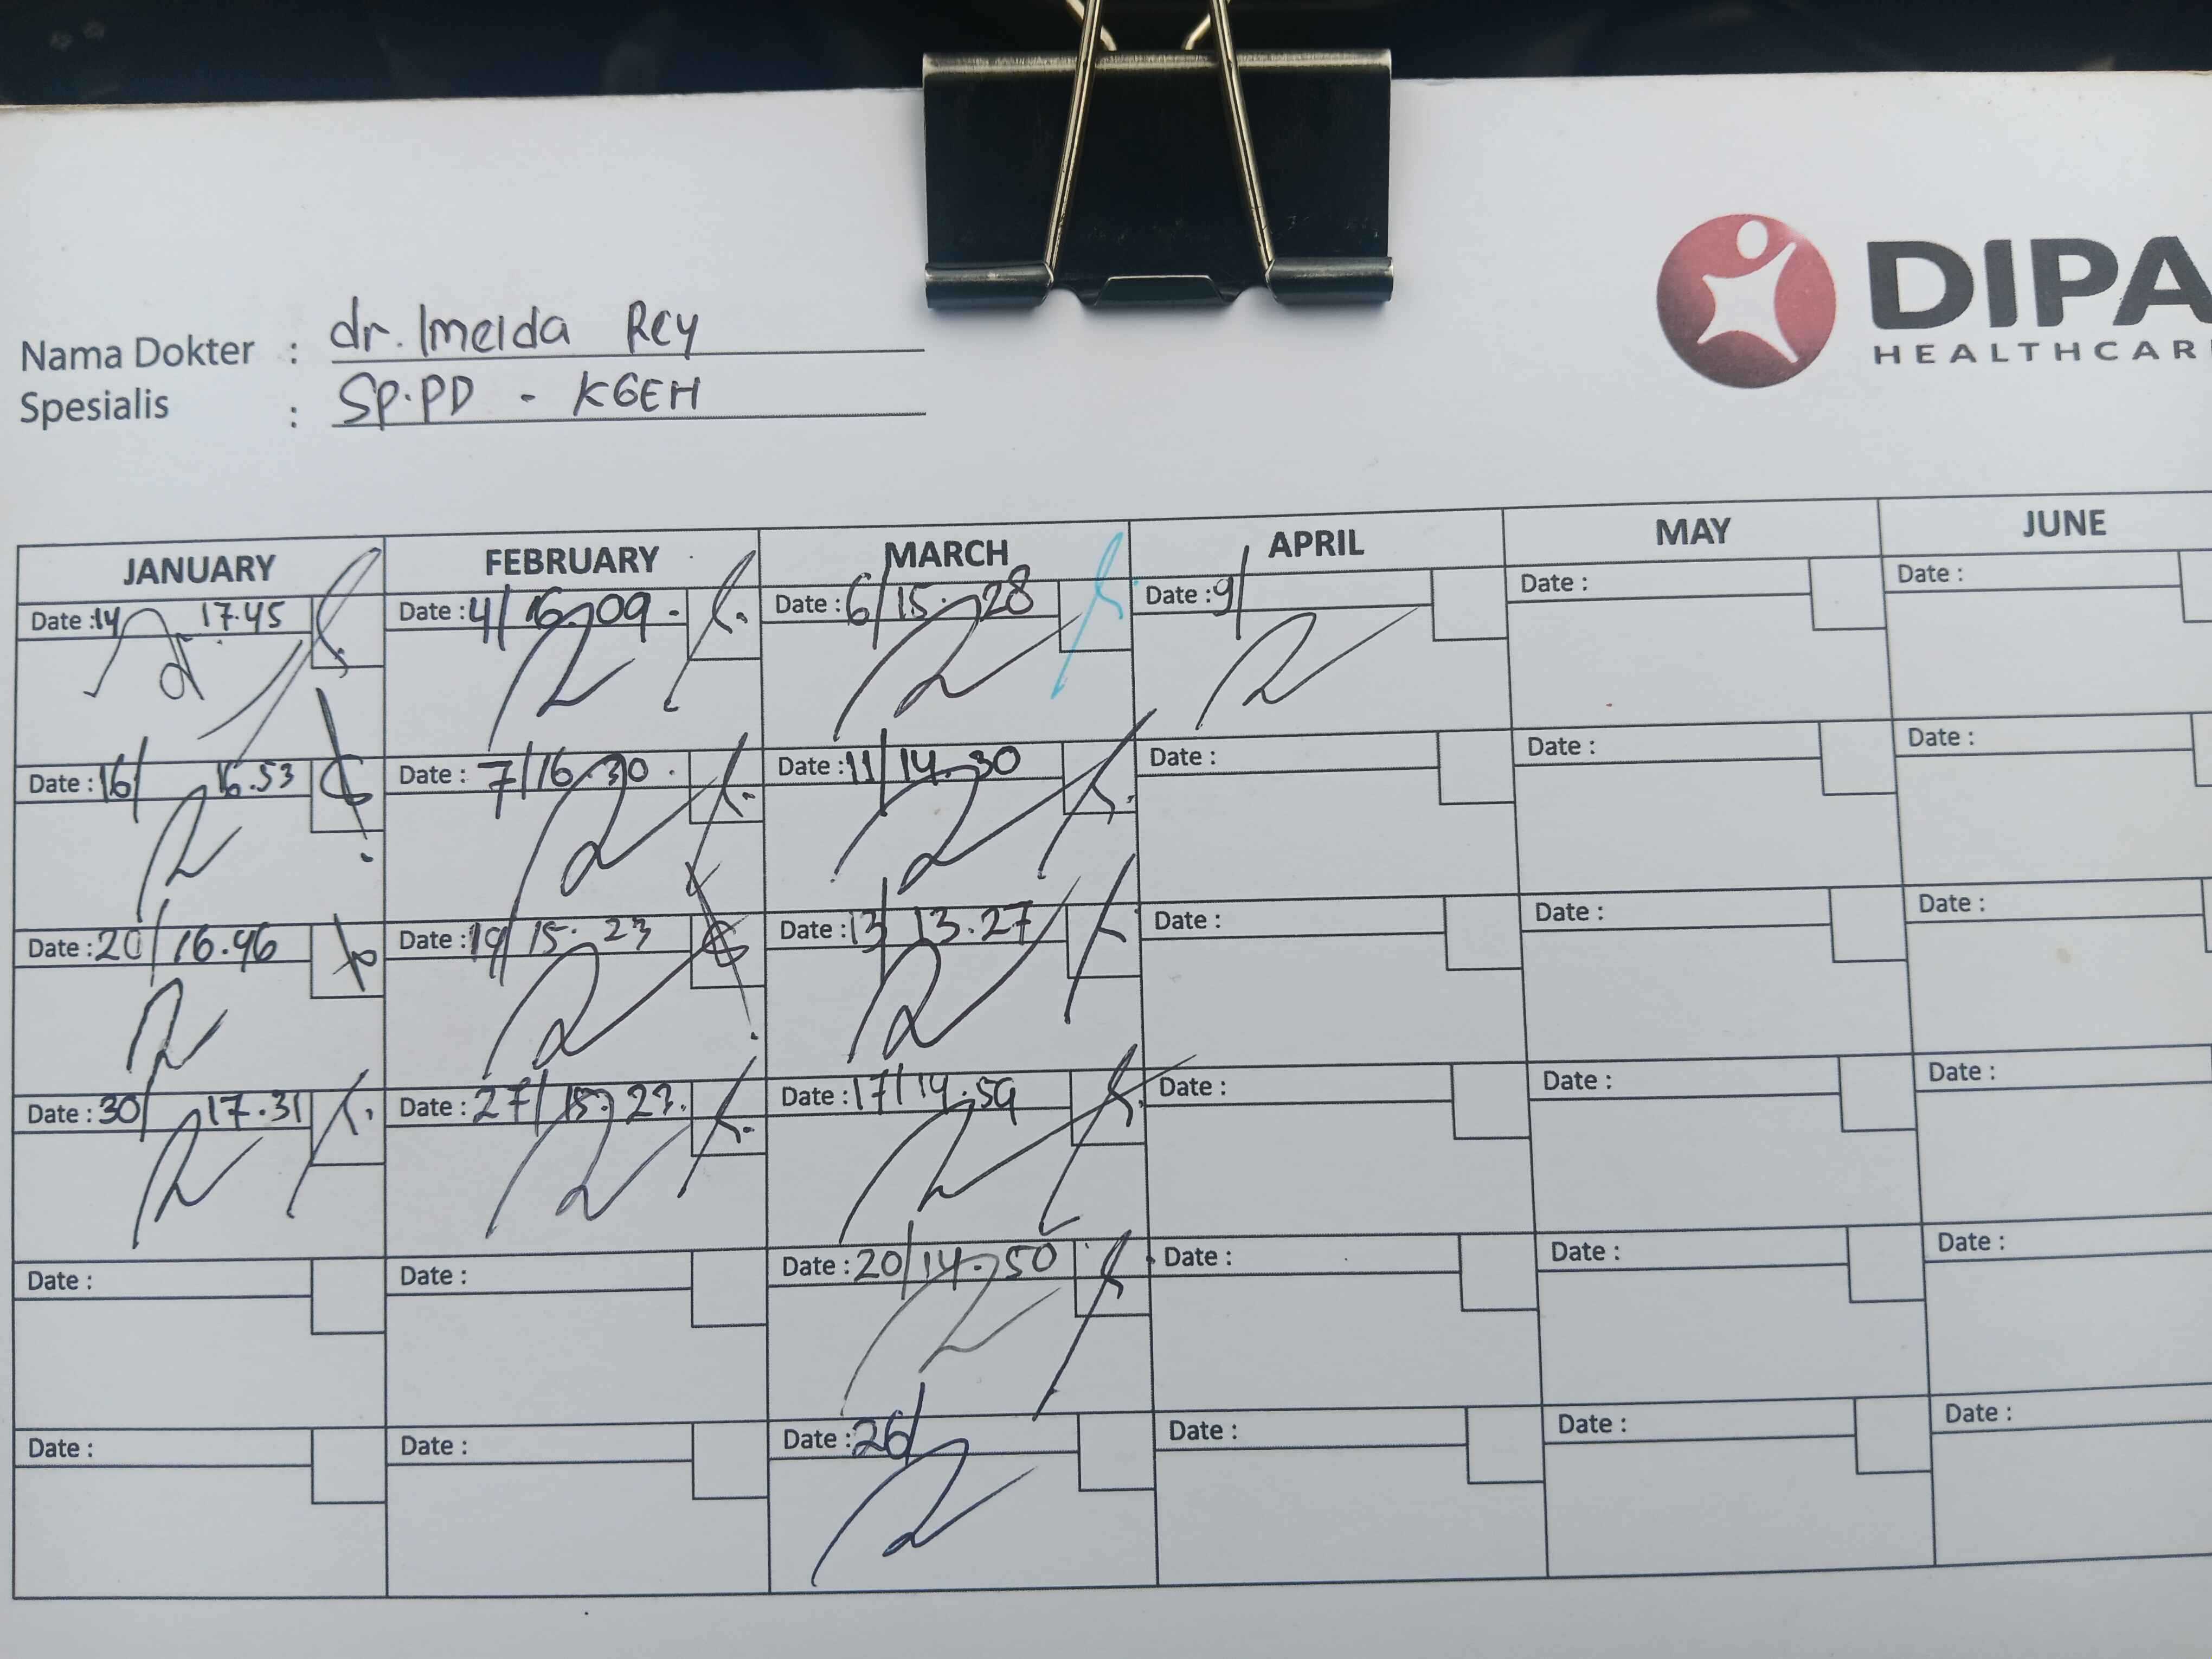 Nama Dokter : dr. Imelda Rey
Spesialis : Sp.PD - KGEH
DIPA
HEALTHCAR
JANUARY FEBRUARY MARCH APRIL MAY JUNE
Date : 14 17.45 Date : 4/ 16.09. Date : 6/ 15.28 Date : 9/ Date : Date :
Date : 16/ 16.53 Date : 7/ 16.30. Date : 11/ 14.30 Date : Date : Date :
Date : 20/ 16.46 Date : 19/ 15.23 Date : 13/ 13.27 Date : Date : Date :
Date : 30/ 17.31 Date : 27/ 15.27. Date : 17/ 14.59 Date : Date : Date :
Date : Date : Date : 20/ 14.50 Date : Date : Date :
Date : Date : Date : 26/ Date : Date : Date :